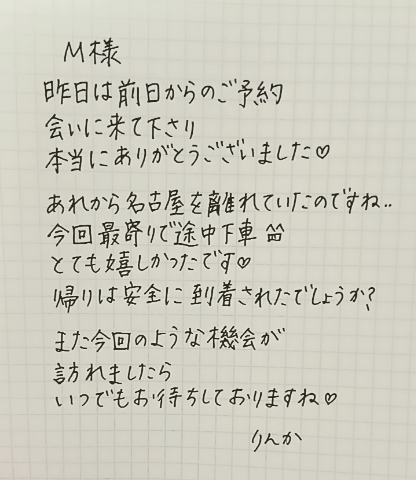 M様
昨日は前日からのご予約
会いに来て下さり
本当にありがとうございました♡
あれから名古屋を離れていたのですね..
今回最寄りで途中下車
とても嬉しかったです♡
帰りは安全に到着されたでしょうか?
また今回のような機会が
訪れましたら
いつでもお待ちしておりますね♡
りんか